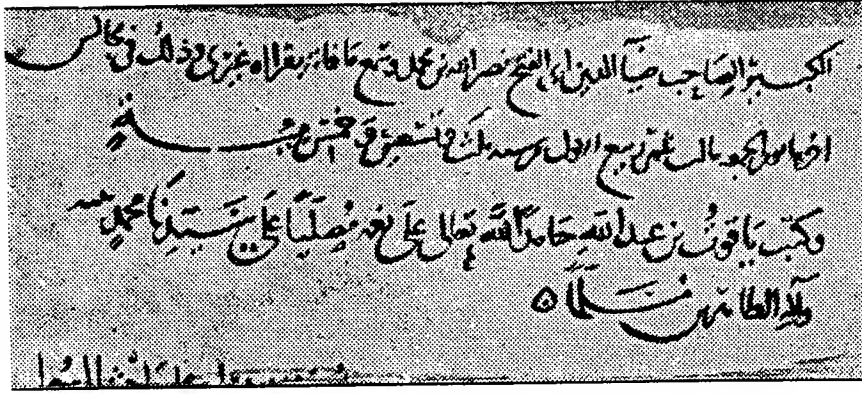 الكبير الصاحب ضيآ الدين ابي الفتح نصر الله بن محمد وسمع ما فاته بقراة غيري وذلك في مجالس
اخرها يوم الجمعة ثالث عشر ربيع الاول سنه ثلث وتسعين وخمس مئة
وكتب ياقوت بن عبد الله حامدا لله تعالى على نعمه مصليا على سيدنا محمد نبيه
وآله الطاهرين مسلما